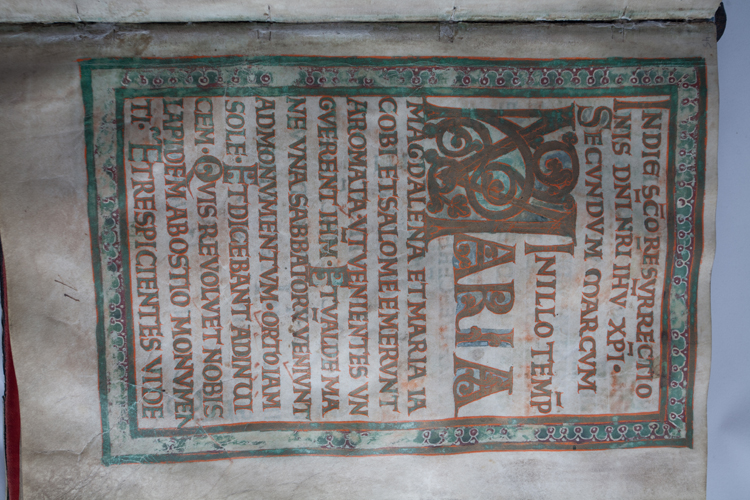 INDIĒ SC̄O RESVRRECTIO
NIS DN̄I NR̄I IHV XP̄I·
SECVNDVM MARCVM
INILLO TEMP̄
MARIA
MAGDALENA ET MARIA IA
COBI ET SALOME EMERVNT
AROMATA VT VENIENTES VN
GVERENT IHM̄· ET VALDE MA
NE VNA SABBATORV̄ VENIVNT
AD MONVMENTVM· ORTO IAM
SOLE· ET DICEBANT AD INVI
CEM· QVIS REVOLVET NOBIS
LAPIDEM AB OSTIO MONVMEN
TI· ET RESPICIENTES VIDE